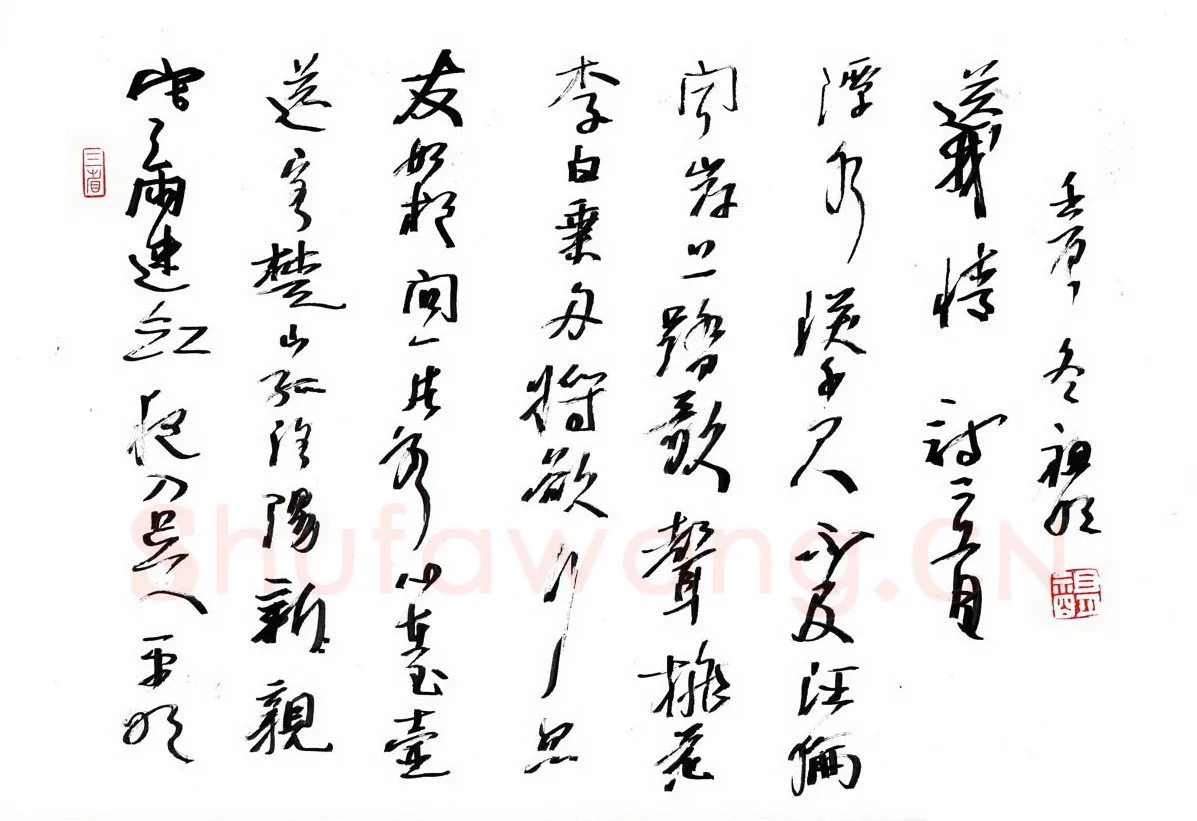 寒雨連江夜入吳平明
送客楚山孤洛陽新親
友如相問一片冰心在玉壺
李白乘舟將欲行忽
聞岸上踏歌聲桃花
潭水深千尺不及汪倫
送我情 詩二首
壬寅冬祖明
三省
Shufawang.CN